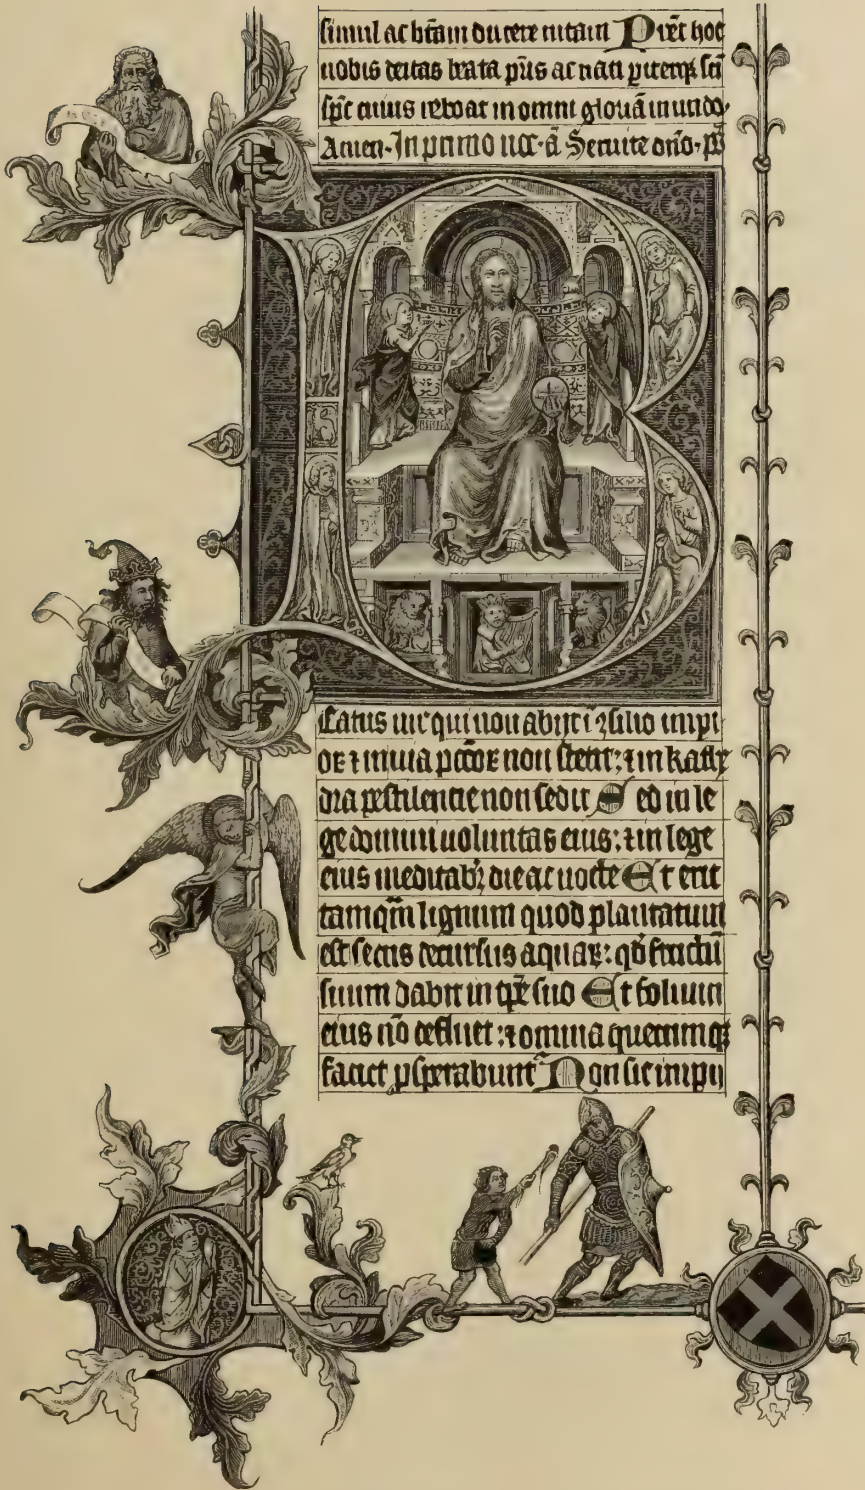 simul ac btam ducere uitam Prēt hoc
nobis deitas beata p̄ris ac nati piterq̢ sc̄i
sp̄c cuius reboat in omni gloūa mundo·
Amen· In primo ā Seruite dn̄o· p̄s
B
Eatus uir qui non abijt ī ꝯsilio impi
oꝝ ⁊ in uia pccoꝝ non stetit; ⁊ in kath̄e
dra pestilencie non sedit Sed in le
ge domini uoluntas eius: ⁊ in lege
eius meditabr̄ die ac nocte Et erit
tamqm̄ lignum quod plantatum
est secus decursus aquaꝝ: qd̄ fructū
suum dabit in tp̄e suo Et folium
eius nō defluet: ⁊ omnia quecumq̢
faciet ꝓsperabuntᷣ Non sic impii